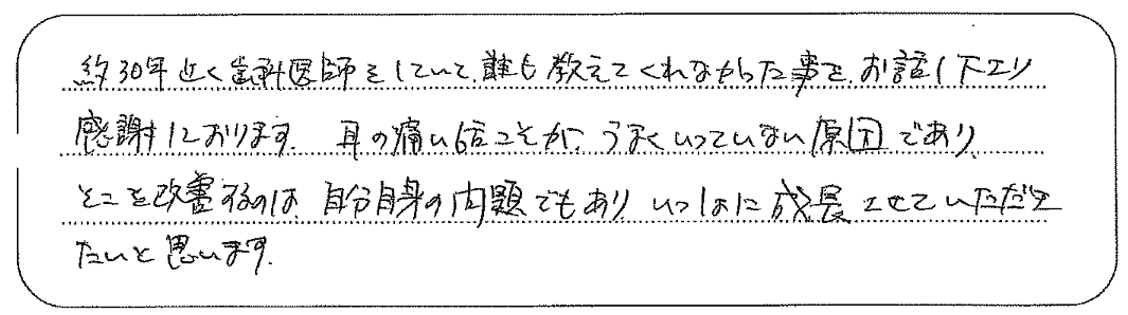 約30年近く歯科医師をしていて、誰も教えてくれなかった事を、お話し下さり
感謝しております。耳の痛い話こそが、うまくいっていない原因であり、
そこを改善するのは、自分自身の問題でもあり、いっしょに成長させていただき
たいと思います。